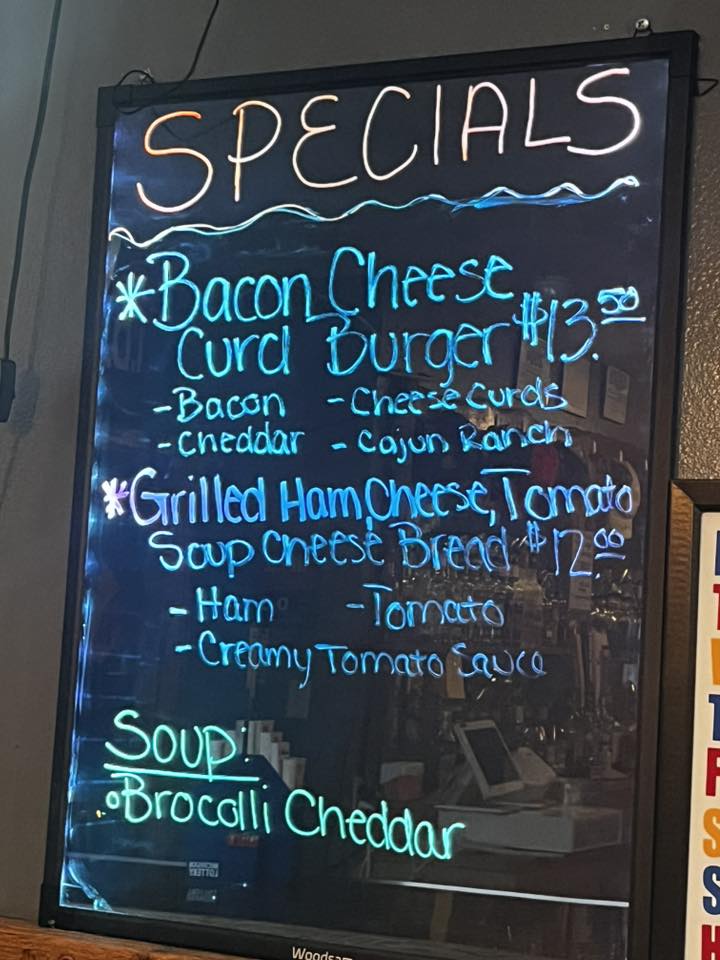 SPECIALS
*Bacon Cheese
Curd Burger $13.50
-Bacon -Cheese Curds
-Cheddar -Cajun Ranch
*Grilled Ham, Cheese, Tomato
Soup Cheese Bread $12.00
-Ham -Tomato
-Creamy Tomato Sauce
Soup:
Brocolli Cheddar